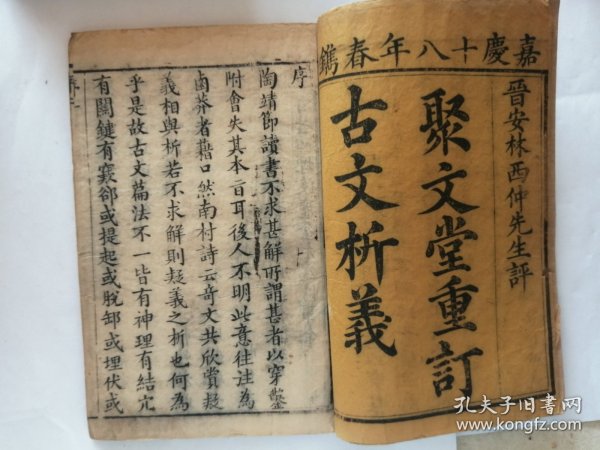 嘉慶十八年春鐫
晉安林西仲先生評
聚文堂重訂
古文析義
序
陶靖節讀書不求甚解所謂甚者以穿鑿
附會失其本旨耳後人不明此意往往為
鹵莽者藉口然南村詩云奇文共欣賞疑
義相與析若不求解則疑義之析也何為
乎是故古文篇法不一皆有神理有結穴
有關鍵有竅郤或提起或脫卸或埋伏或
孔夫子旧书网
www.kongfz.com